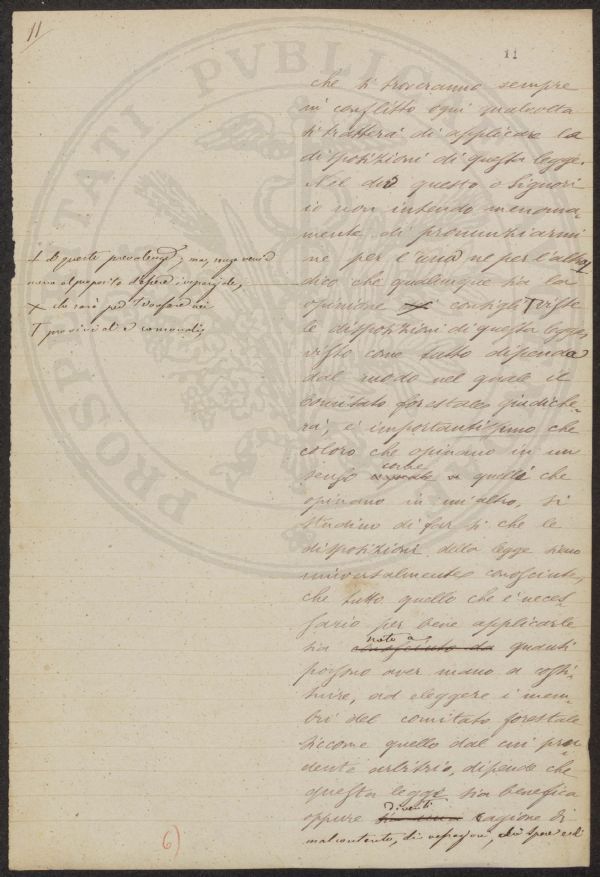 11
11
PROSPERITATI PVBLICAE
che si troveranno sempre
in conflitto ogni qualvolta
si tratterà di applicare le
disposizioni di questa legge.
Nel dir questo o Signori
io non intendo menoma-
mente di pronunziarmi
nè per l'una nè per l'altra,
dico che qualunque sia la
opinione consigli T viste
le disposizioni di questa legge,
visto come tutto dipenda
dal modo nel quale il
comitato forestale giudiche-
rà, è importantissimo che
coloro che opinano in un
senso come quelli che
opinano in un'altro, si
studino di far sì che le
disposizioni della legge sieno
universalmente conosciute,
che tutto quello che è neces-
sario per bene applicarle
sia noto a quanti
possono aver mano a costi-
tuire, ad eleggere i mem-
bri del comitato forestale
siccome quello dal cui pru-
dente arbitrio, dipende che
questa legge sia benefica
oppure diventi cagione di
malcontento, di
+ di queste prevalenze, ma
al proposito d'essere imparziale,
T provinciali e comunali,
6)